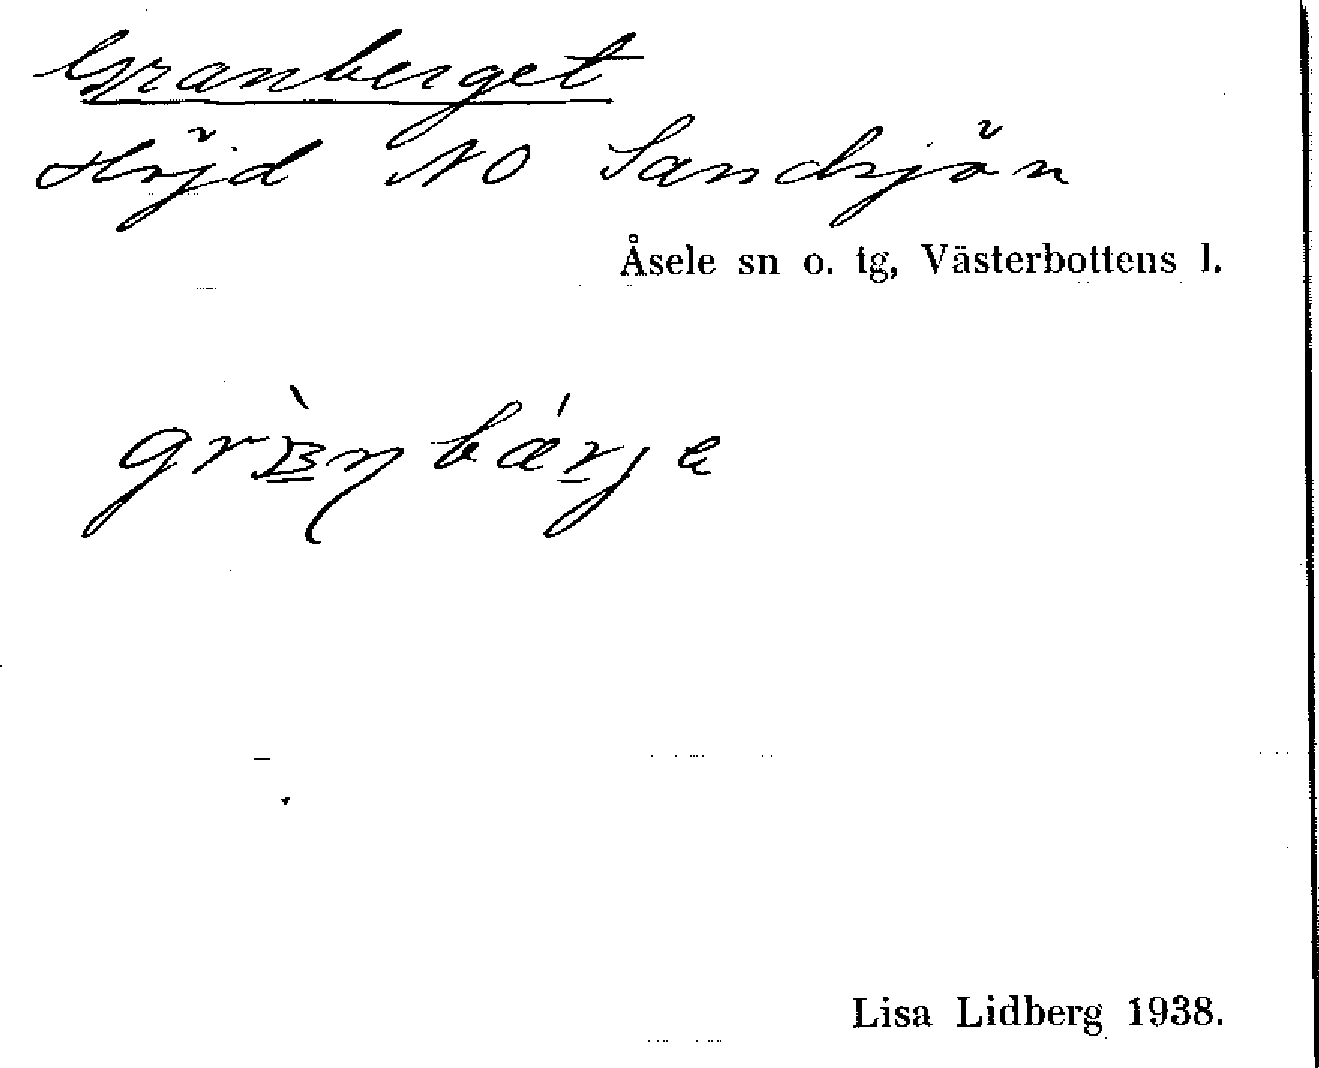 Granberget
Höjd NO Sandsjön
Åsele sn o. tg, Västerbottens l.
Lisa Lidberg 1938.